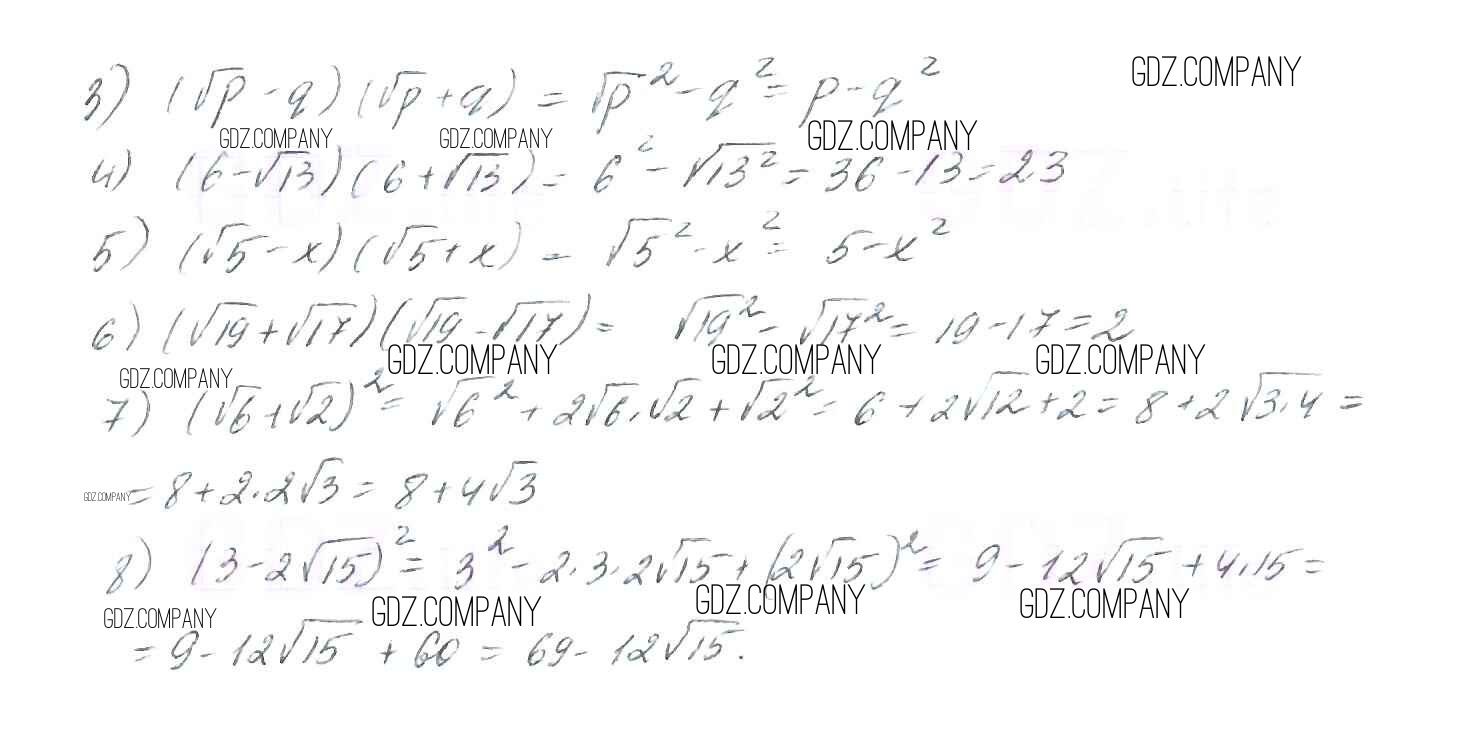 3) (√p - q)(√p + q) = √p² - q² = p - q²
GDZ.COMPANY
GDZ.COMPANY GDZ.COMPANY GDZ.COMPANY
4) (6 - √13)(6 + √13) = 6² - √13² = 36 - 13 = 23
5) (√5 - x)(√5 + x) = √5² - x² = 5 - x²
6) (√19 + √17)(√19 - √17) = √19² - √17² = 19 - 17 = 2
GDZ.COMPANY GDZ.COMPANY GDZ.COMPANY GDZ.COMPANY
7) (√6 + √2)² = √6² + 2√6·√2 + √2² = 6 + 2√12 + 2 = 8 + 2√3·4 =
GDZ.COMPANY
= 8 + 2·2√3 = 8 + 4√3
8) (3 - 2√15)² = 3² - 2·3·2√15 + (2√15)² = 9 - 12√15 + 4·15 =
GDZ.COMPANY GDZ.COMPANY GDZ.COMPANY GDZ.COMPANY
= 9 - 12√15 + 60 = 69 - 12√15.